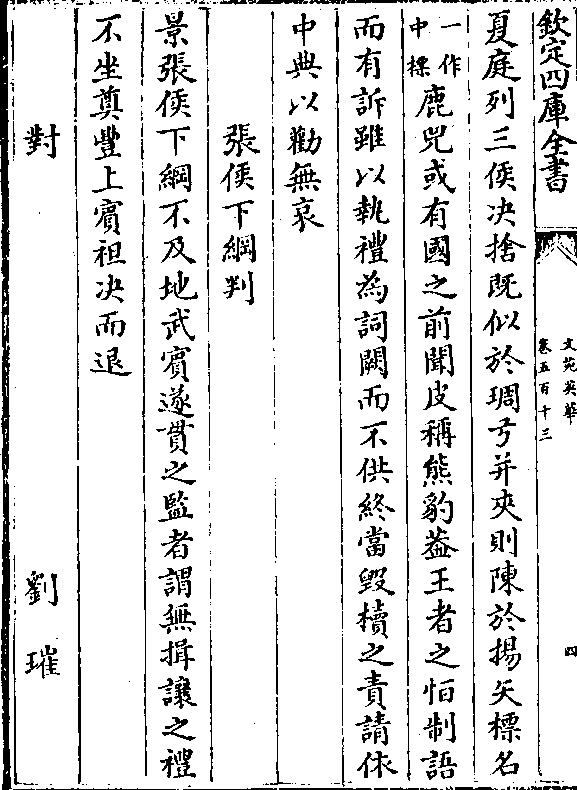 欽定四庫全書
文苑英華
卷五百十三
四
夏庭列三侯决捨既似於琱弓并夾則陳於揚矢標名
一作中標鹿兕或有國之前聞皮稱熊豹葢王者之恒制語
而有訴雖以執禮為詞闕而不供終當毀櫝之責請依
中典以勸無哀
張侯下綱判
景張侯下綱不及地武賔遂貫之監者謂無揖讓之禮
不坐奠豐上賔袒决而退
對
劉璀